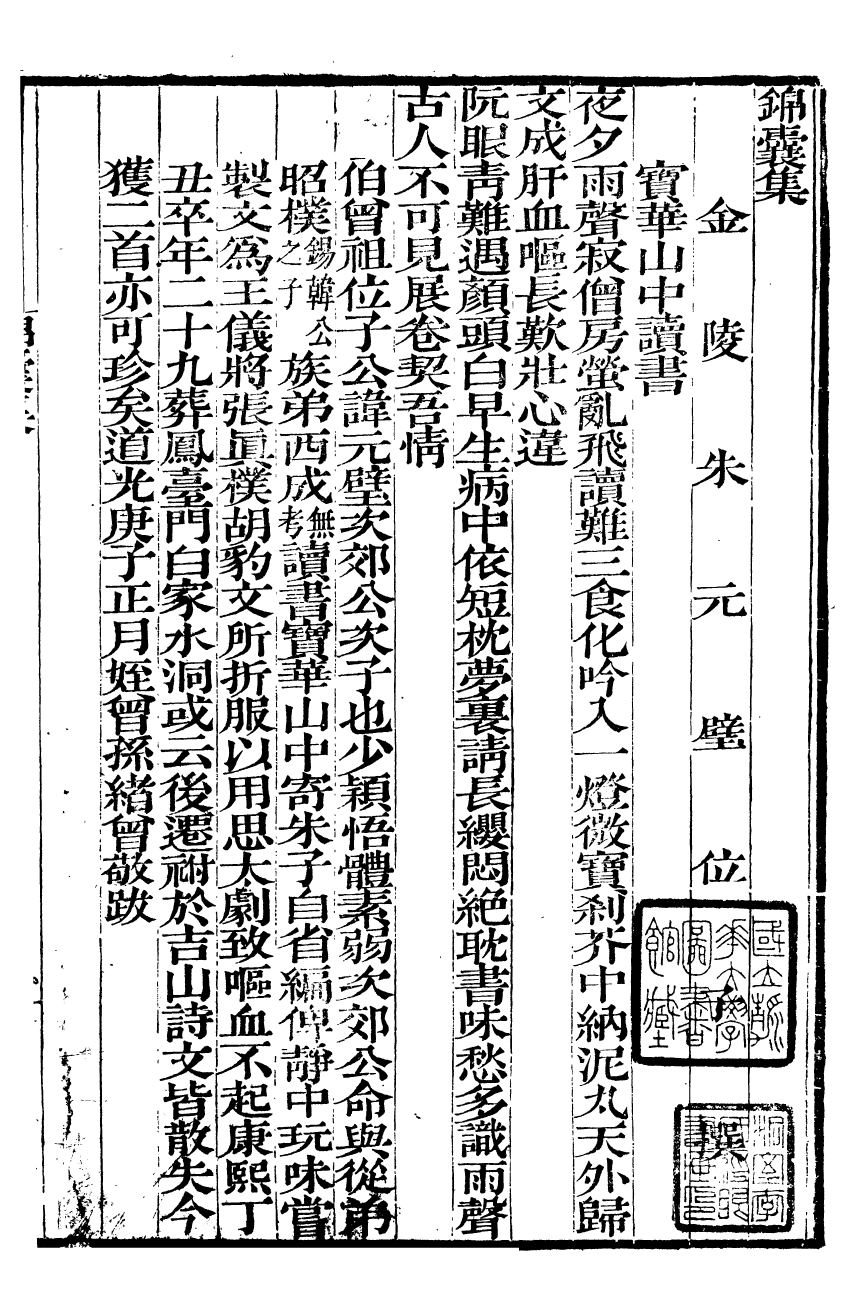 錦囊集
金陵朱元璧位撰
寶華山中讀書
夜夕雨聲寂僧房螢亂飛讀難三食化吟入一燈微寶刹芥中納泥丸天外歸
文成肝血嘔長歎壯心違
阮眼靑難遇顏頭白早生病中依短枕夢裏請長纓悶絕耽書味愁多識雨聲
古人不可見展卷契吾情
伯曾祖位子公諱元璧次郊公次子也少穎悟體素弱次郊公命與從弟
昭樸錫韓公之子族弟西成無考讀書寶華山中寄朱子自省編俾靜中玩味嘗
製文爲王儀將張眞樸胡豹文所折服以用思太劇致嘔血不起康熙丁
丑卒年二十九葬鳳臺門白家水洞或云後遷祔於吉山詩文皆散失今
獲二首亦可珍矣道光庚子正月姪曾孫緒曾敬跋
國立
大學
圖書
館藏